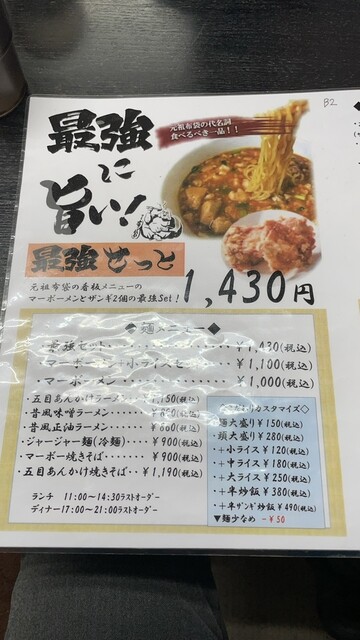 B2
元祖布袋の代名詞
食べるべき一品！！
最強
に
旨い！
最強せっと
元祖布袋の看板メニューの
マーボーメンとザンギ2個の最強Set！
1,430円
◆麺メニュー◆
・最強セット ¥1,430(税込)
・マーボーメン+小ライスセット ¥1,100(税込)
・マーボーメン ¥1,000(税込)
・五目あんかけラーメン ¥1,150(税込)
・昔風味噌ラーメン (税込)
・昔風正油ラーメン・・・・¥860(税込)
・ジャージャー麺(冷麺) ¥900(税込)
・マーボー焼きそば・・・¥900(税込)
・五目あんかけ焼きそば・・¥1,190(税込)
ランチ 11:00〜14:30ラストオーダー
ディナー17:00〜21:00ラストオーダー
カスタマイズ◇
麺大盛り¥150(税込)
頭大盛り¥280(税込)
・+小ライス¥120(税込)
・+中ライス¥180(税込)
・+大ライス¥250(税込)
・+半炒飯¥380(税込)
・+半ザンギ炒飯¥490(税込)
▼麺少なめ -¥50